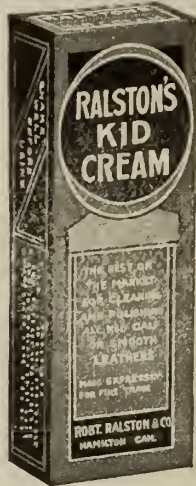 RALSTON'S
KID
CREAM
THE BEST ON
THE MARKET
FOR CLEANING
AND POLISHING
ALL KID CALF
OR SMOOTH
LEATHERS
MADE EXPRESSLY
FOR FINE TRADE
ROBT. RALSTON & CO
HAMILTON CAN.
SHAKE
WELL BEFORE
USING